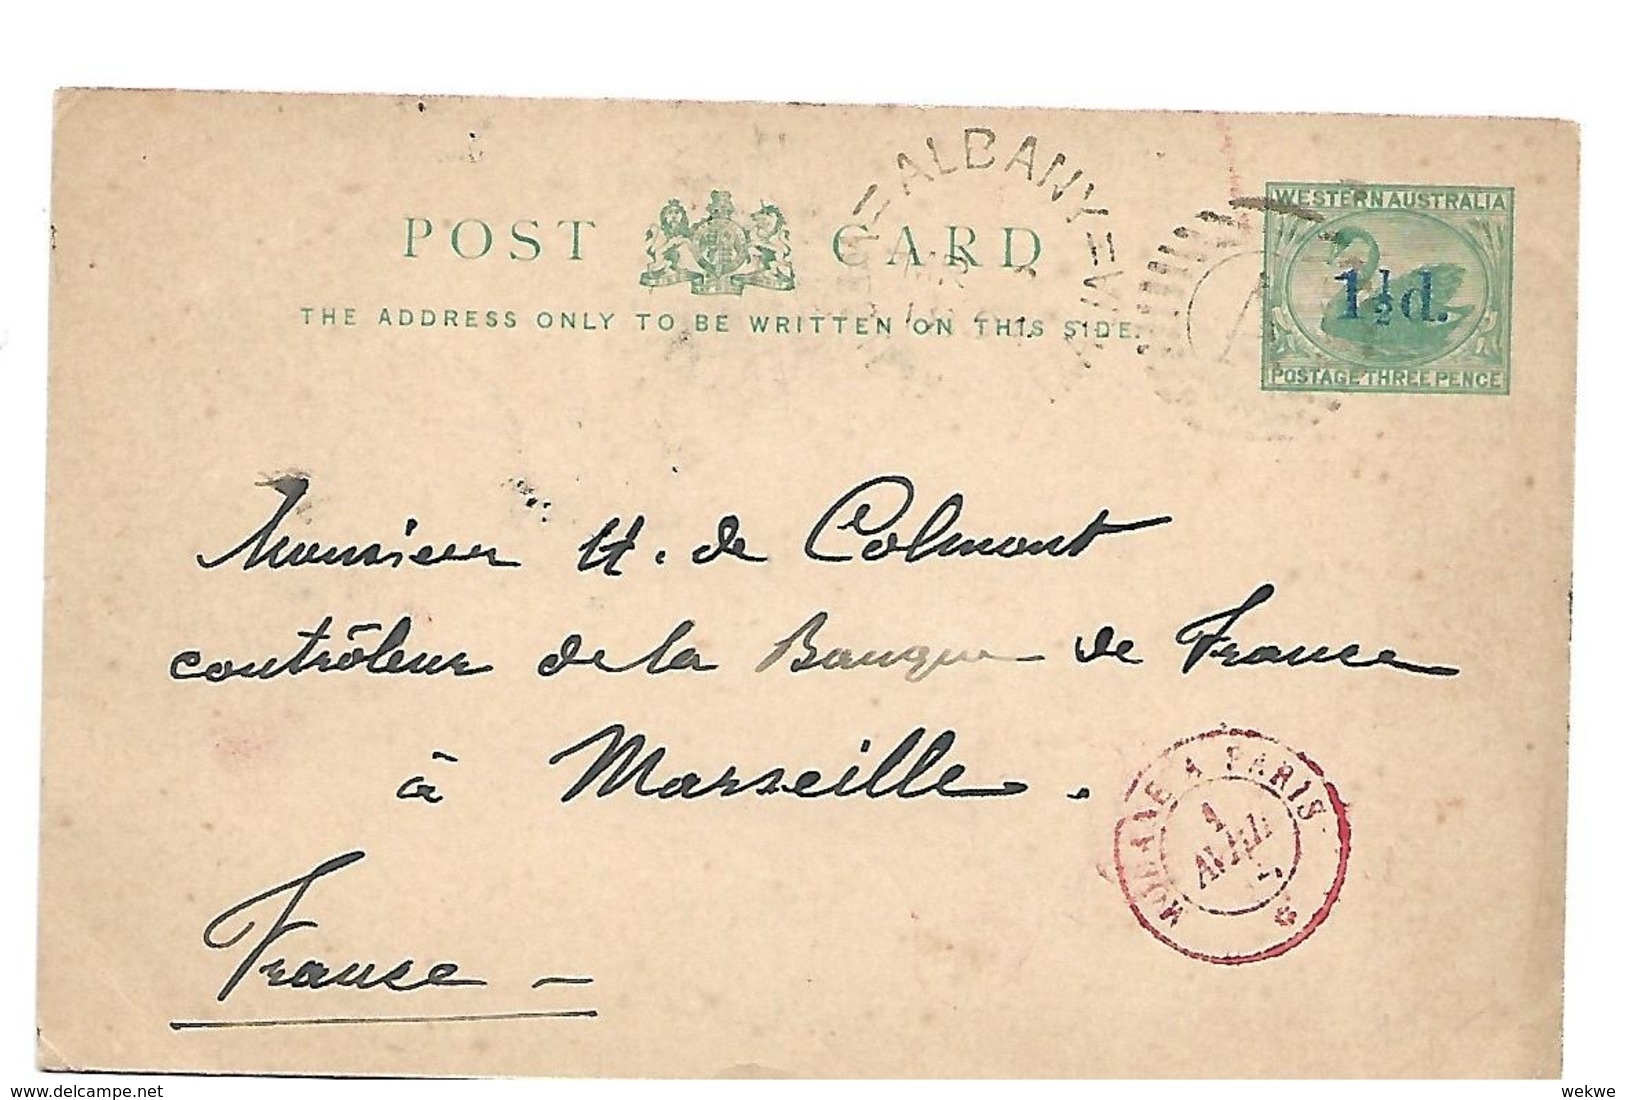 ALBANY
WESTERN AUSTRALIA
POST CARD
1½d.
THE ADDRESS ONLY TO BE WRITTEN ON THIS SIDE.
POSTAGE THREE PENCE
Monsieur H. de Colmont
contrôleur de la Banque de France
à Marseille.
MODANE A PARIS
France
delcampe.net
wekwe